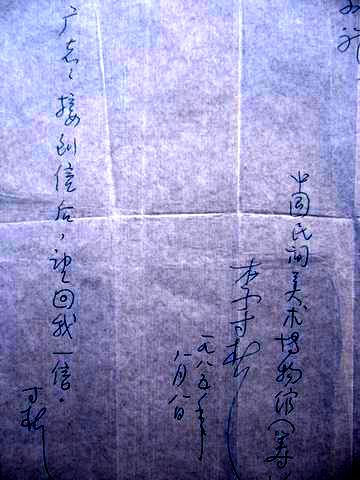 中国民间美术博物馆(筹
李寸松
一九八五年
八月八日
接到信后,望回我一信。
寸松